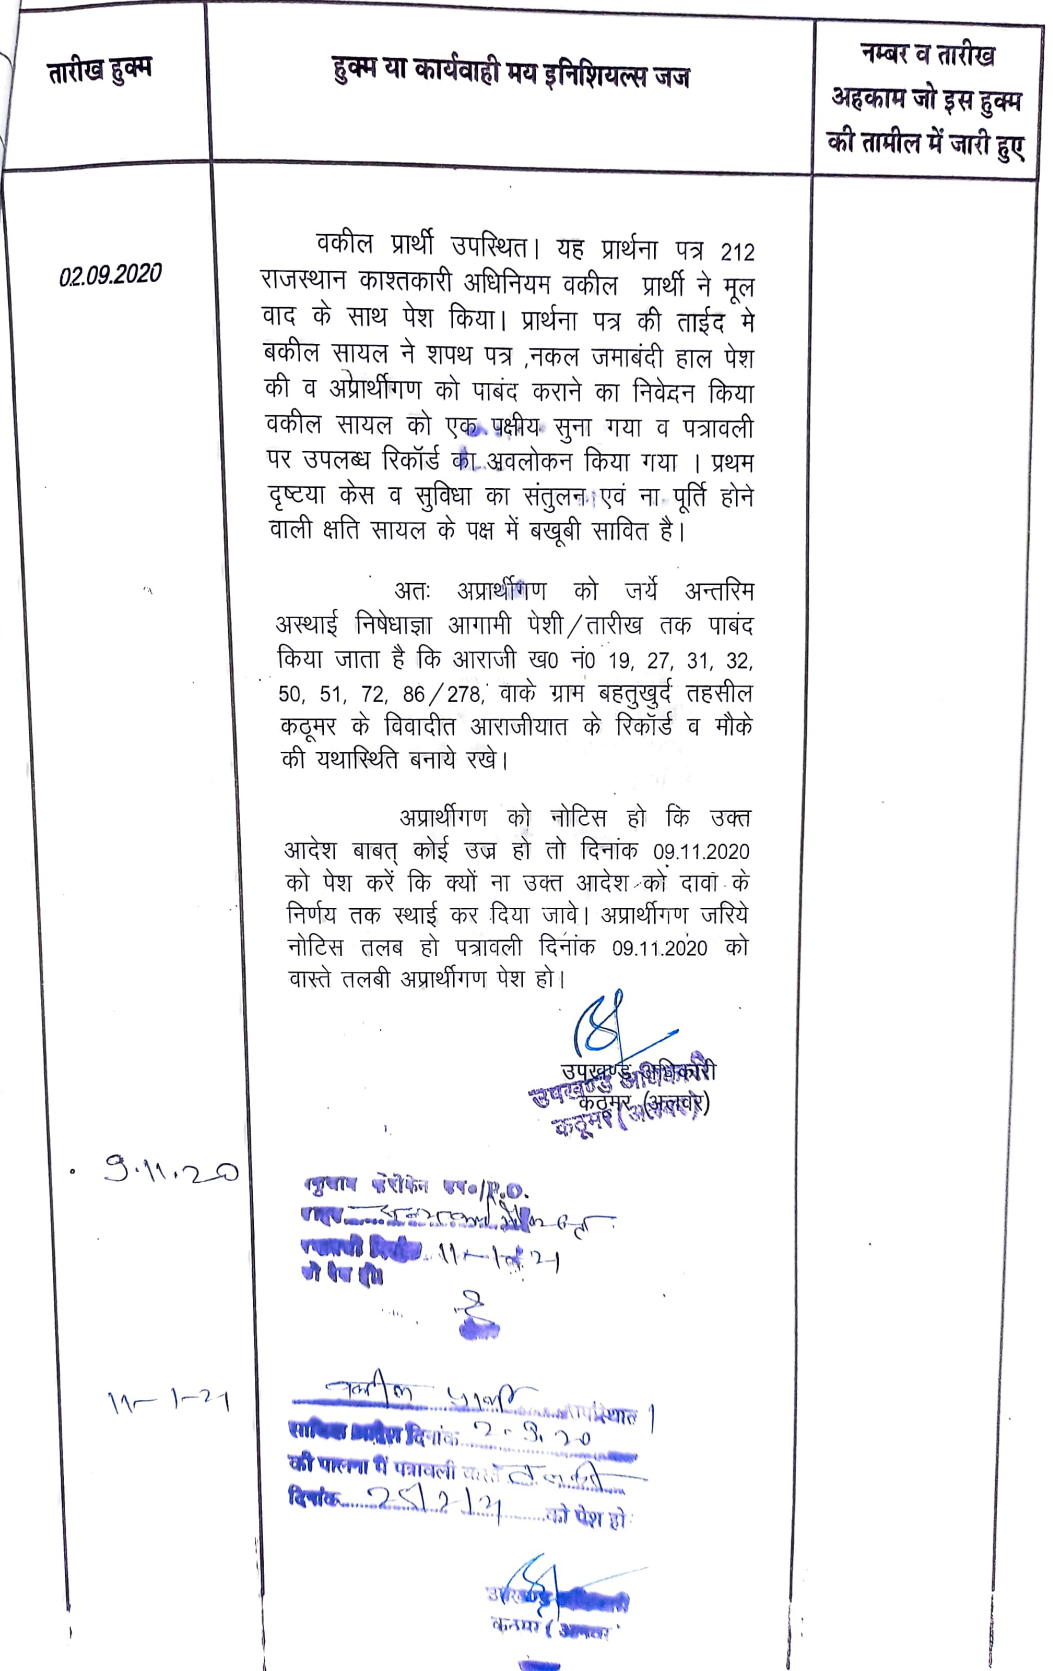 तारीख हुक्म
हुक्म या कार्यवाही मय इनिशियल्स जज
नम्बर व तारीख
अहकाम जो इस हुक्म
की तामील में जारी हुए
02.09.2020
वकील प्रार्थी उपस्थित। यह प्रार्थना पत्र 212
राजस्थान काश्तकारी अधिनियम वकील प्रार्थी ने मूल
वाद के साथ पेश किया। प्रार्थना पत्र की ताईद मे
बकील सायल ने शपथ पत्र ,नकल जमाबंदी हाल पेश
की व अप्रार्थीगण को पाबंद कराने का निवेदन किया
वकील सायल को एक पक्षीय सुना गया व पत्रावली
पर उपलब्ध रिकॉर्ड का अवलोकन किया गया । प्रथम
दृष्टया केस व सुविधा का संतुलन एवं ना पूर्ति होने
वाली क्षति सायल के पक्ष में बखूबी सावित है।
अतः अप्रार्थीगण को जर्ये अन्तरिम
अस्थाई निषेधाज्ञा आगामी पेशी/तारीख तक पाबंद
किया जाता है कि आराजी ख0 नं0 19, 27, 31, 32,
50, 51, 72, 86/278, वाके ग्राम बहतुखुर्द तहसील
कठूमर के विवादीत आराजीयात के रिकॉर्ड व मौके
की यथास्थिति बनाये रखे।
अप्रार्थीगण को नोटिस हो कि उक्त
आदेश बाबत् कोई उज्र हो तो दिनांक 09.11.2020
को पेश करें कि क्यों ना उक्त आदेश को दावा के
निर्णय तक स्थाई कर दिया जावे। अप्रार्थीगण जरिये
नोटिस तलब हो पत्रावली दिनांक 09.11.2020 को
वास्ते तलबी अप्रार्थीगण पेश हो।
उपखण्ड अधिकारी
कठूमर (अलवर)
उपखण्ड अधिकारी
कठूमर (अलवर)
9.11.20
P.O.
11-1-21
को पेश हो।
11-1-21
वकील प्रार्थी उपस्थित।
साबिक आदेश दिनांक 2.9.20
की पालना में पत्रावली वास्ते तलबी
दिनांक 25/2/21 को पेश हो
उपखण्ड अधिकारी
कठूमर (अलवर